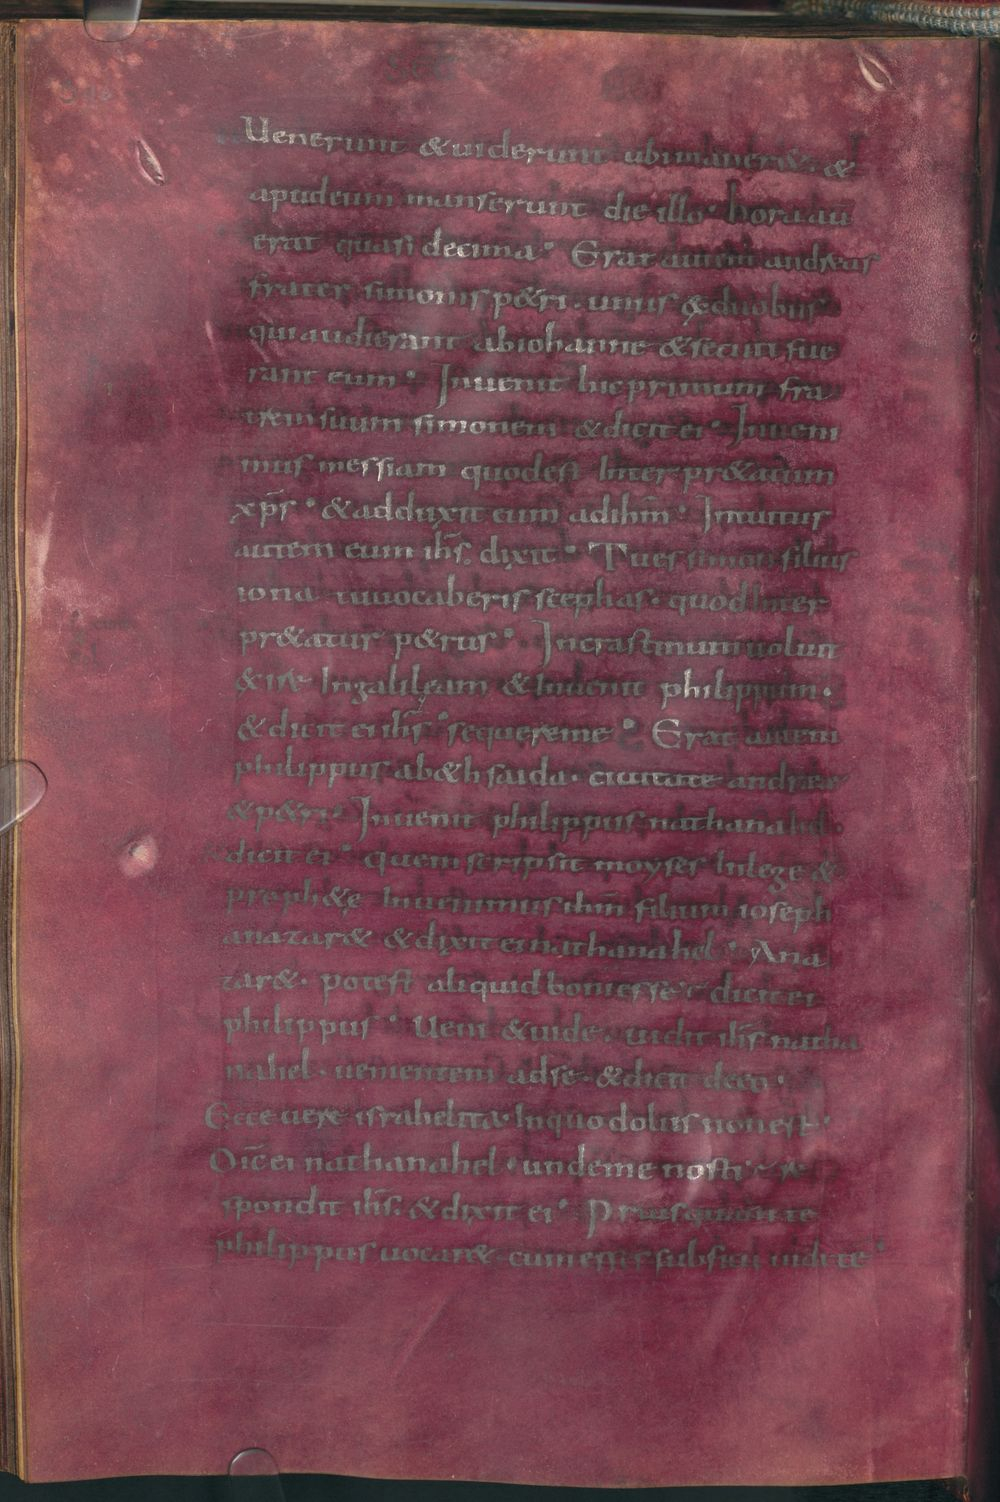 Uenerunt &uiderunt ubimaner&· &
apudeum manserunt die illo· hora au
erat quasi decima· Erat autem andreas
frater simonis p&ri· unus ex duobus
qui audierant abiohanne &secuti fue
rant eum· Inuenit hic primum fra
trem suum simonem &dicit ei· Inueni
mus messiam quodest Interpr&atum
xp̄s· &adduxit eum adih̄m· Intuitus
autem eum ih̄s. dixit· Tu es simon filius
iona tuuocaberis scephas· quodInter
pr&atur p&rus· Incrastinum uoluit
&ire Ingalilęam &Inuenit philippum·
&dicit ei ih̄s· sequereme· Erat autem
philippus ab&hsaida· ciuitate andreae
&p&ri· Inuenit philippus nathanahel·
&dicit ei· quem scripsit moyses Inlege &
proph&ę Inuenimus ih̄m filium ioseph
anazar& &dixit ei nathanahel· Ana
zar&· potest aliquid boni esse· dicit ei
philippus· Ueni &uide· uidit ih̄s natha
nahel· uenientem adse· &dicit deeo·
Ecce uere israhelita· Inquo dolus nonest·
Dic̄ ei nathanahel· undeme nosti· re
spondit ih̄s. &dixit ei· Priusquam te
philippus uocar&· cum esses subficu uidi te·